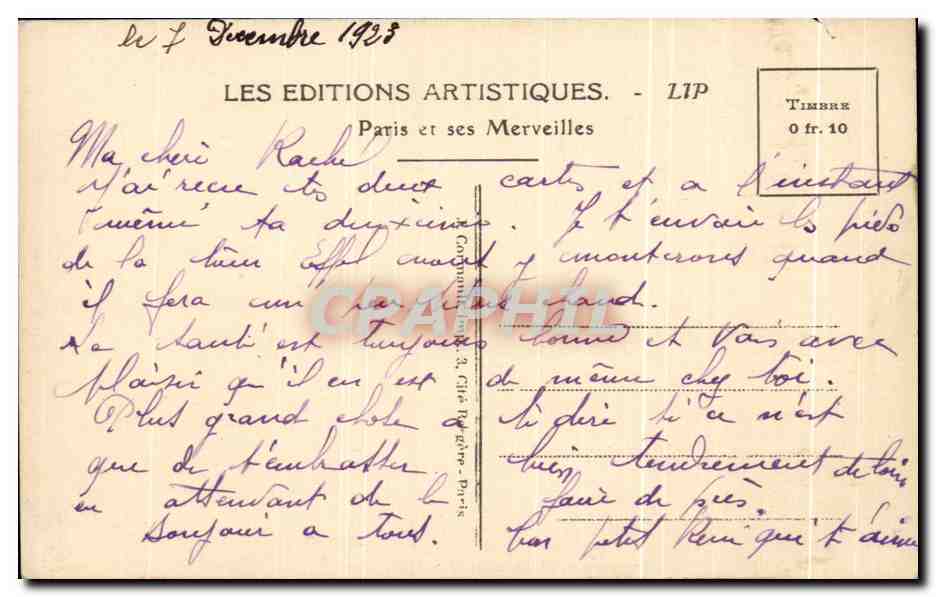 le 7 Decembre 1923
LES EDITIONS ARTISTIQUES. - LIP
Paris et ses Merveilles
TIMBRE
0 fr. 10
Ma cheri
J'ai recu tes deux cartes et a l'instant
même ta deuxieme. Je t'envoie les pieds
de la tour Effel nous y monterons quand
il fera un peu plus chaud.
La santé est toujours bonne et vois avec
plaisir qu'il en est de même chez toi.
Plus grand chose a te dire si ce n'est
que de t'embrasser bien tendrement de loin
en attendant de le faire de près.
Bonjour a tous. ton petit René qui t'aime
A. Cormault, Imp., 3, Cité Bergère-Paris
CPAPHIL